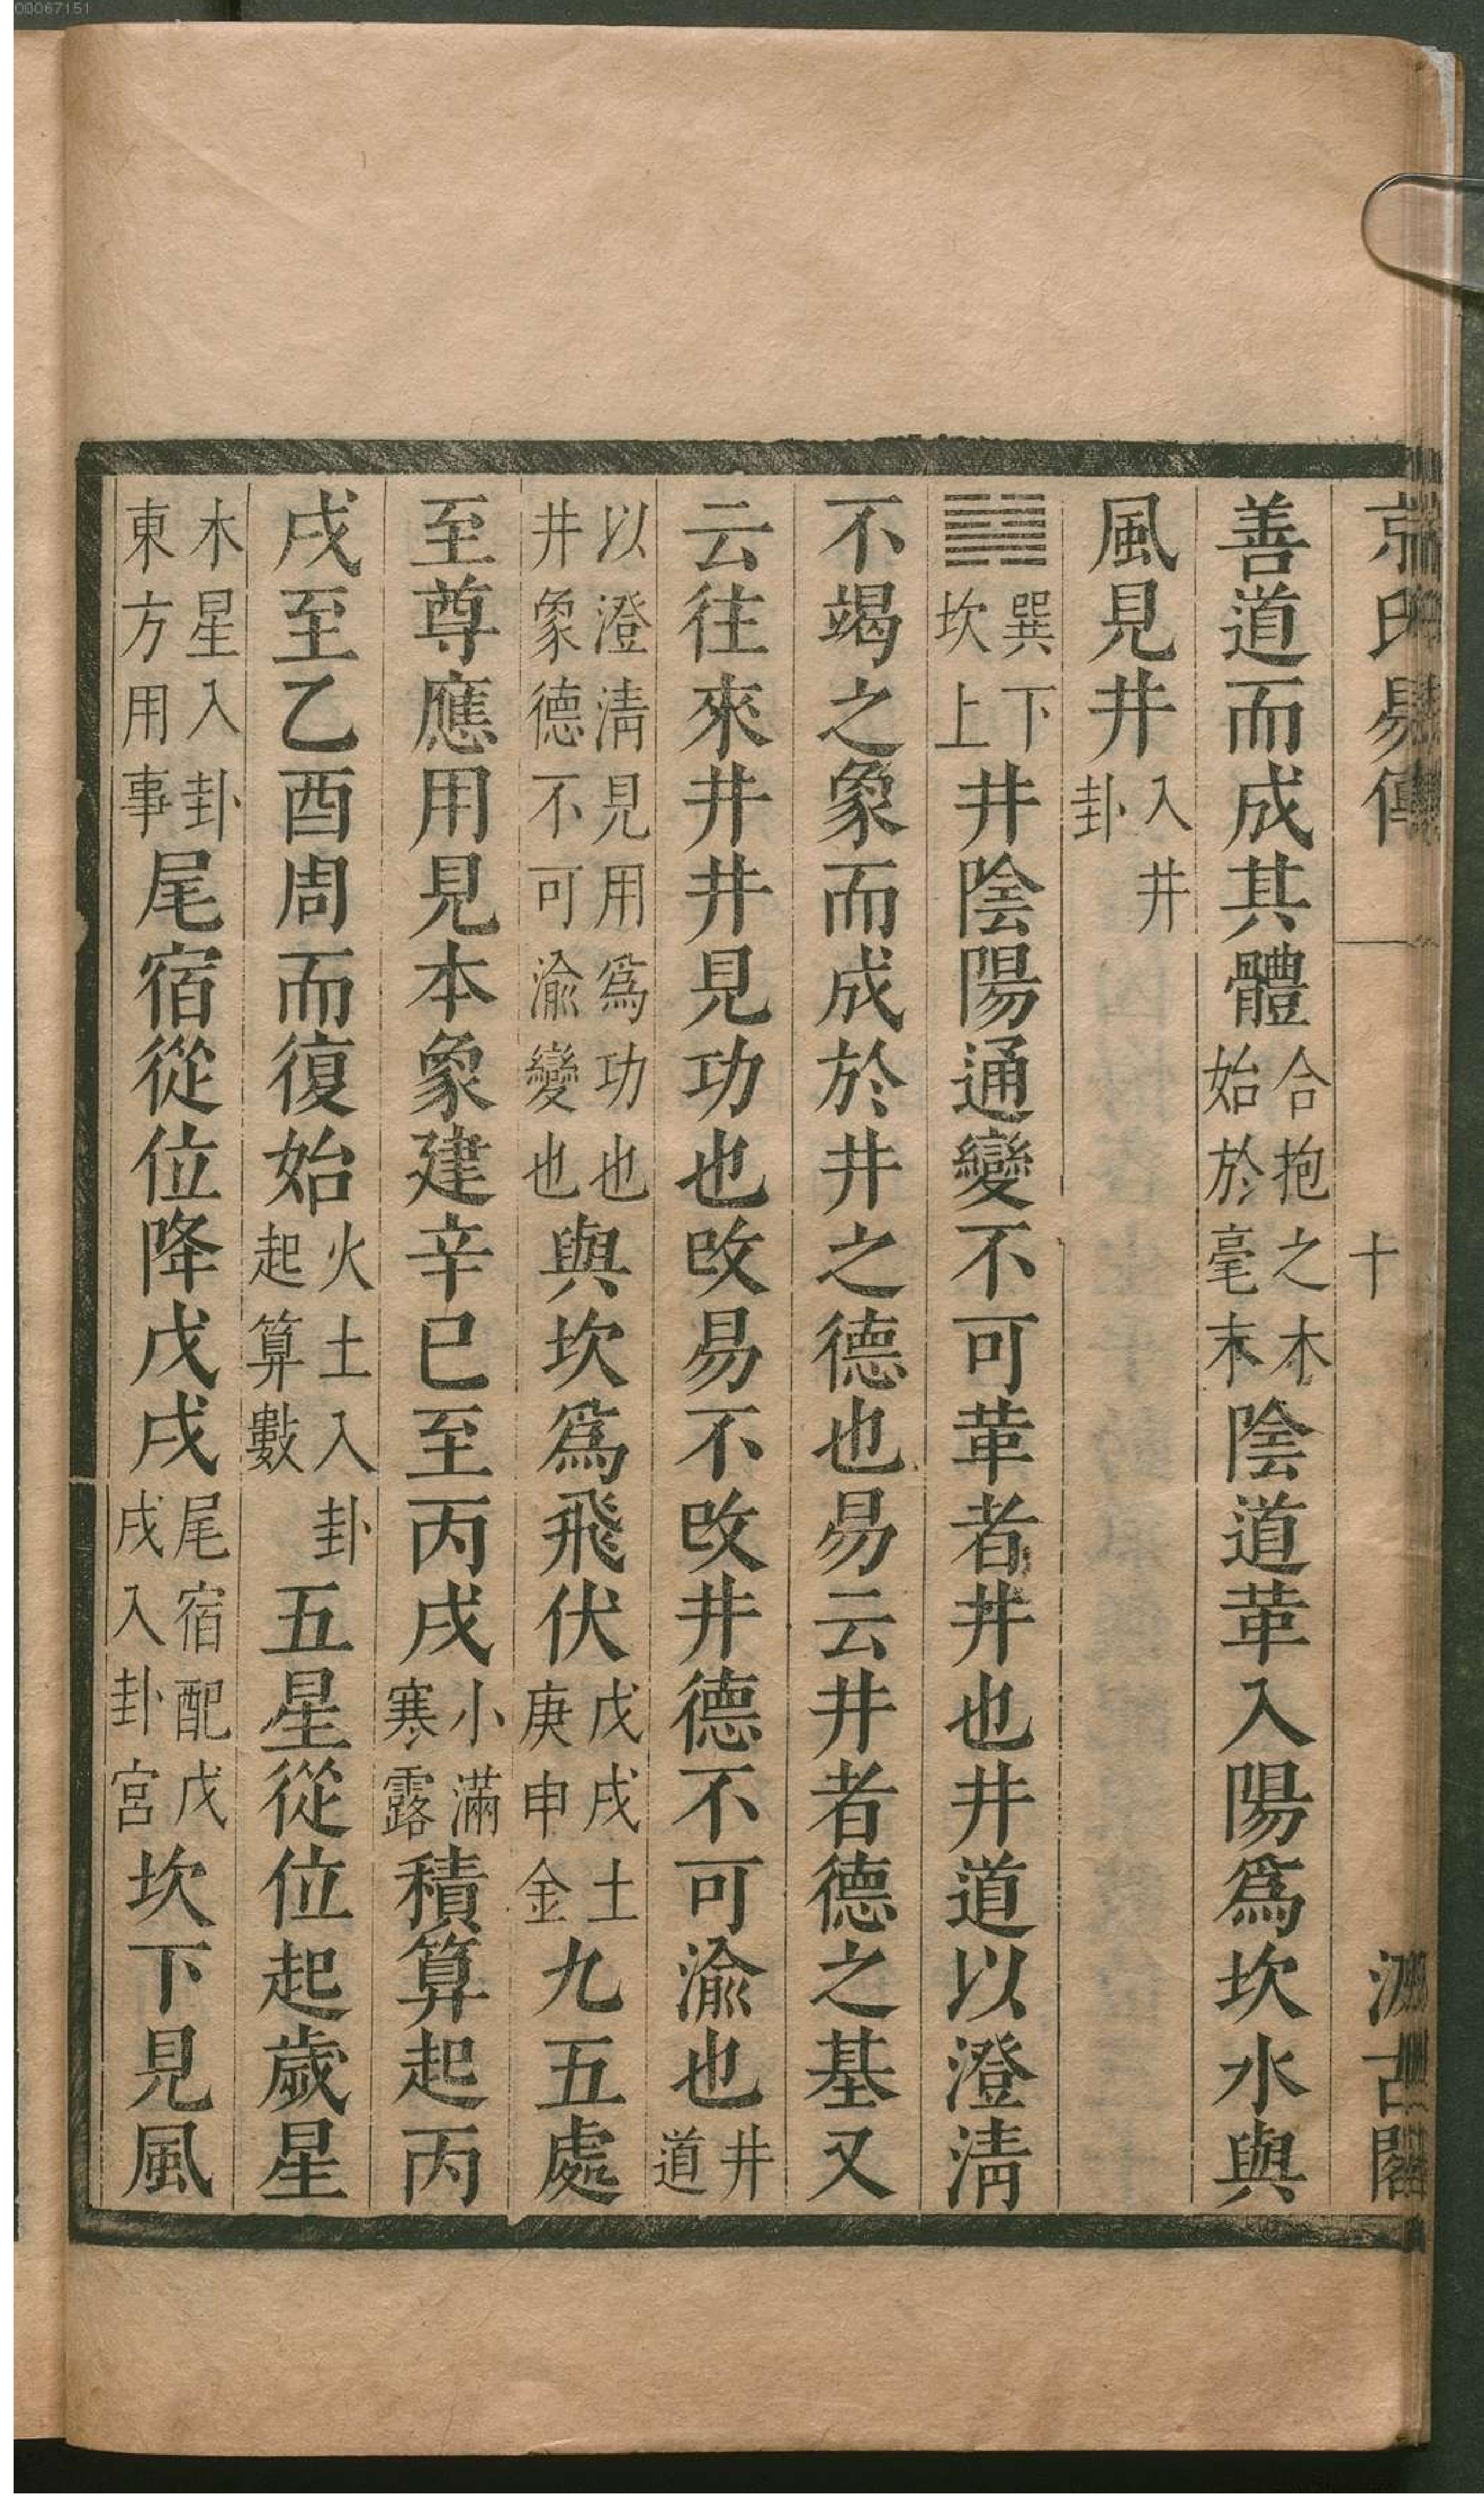 00067151
京氏易傳 十 汲古閣
善道而成其體合抱之木始於毫末陰道革入陽爲坎水與
風見井入井卦
䷯巽下坎上井陰陽通變不可革者井也井道以澄清
不竭之象而成於井之德也易云井者德之基又
云往來井井見功也改易不改井德不可渝也井道
以澄清見用爲功也井象德不可渝變也與坎爲飛伏戊戌土庚申金九五處
至尊應用見本象建辛巳至丙戌小滿寒露積算起丙
戌至乙酉周而復始火土入卦起算數五星從位起歲星
木星入卦東方用事尾宿從位降戊戌尾宿配戊戌入卦宮坎下見風